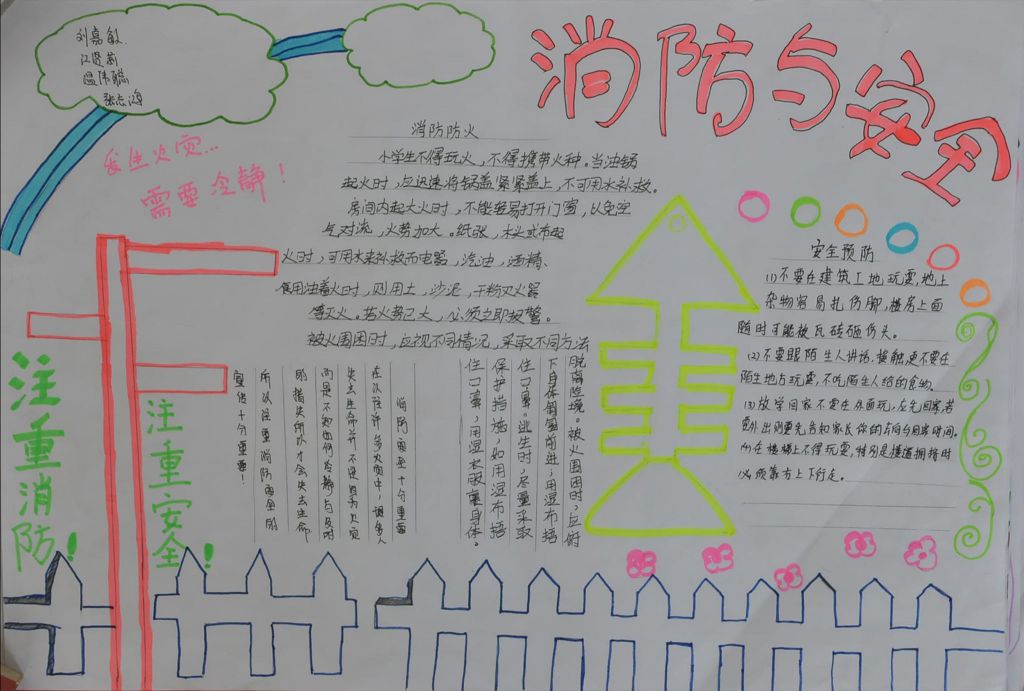 消防与安全
刘嘉敏
江贤莉
温伟聪
张志鸿
发生火灾...
需要冷静！
消防防火
小学生不得玩火，不得携带火种。当油锅
起火时，应迅速将锅盖紧紧盖上，不可用水补救。
房间内起大火时，不能轻易打开门窗，以免空
气对流，火势加大。纸张，木头或布起
火时，可用水来补救而电器，汽油，酒精、
食用油着火时，则用土，沙泥，干粉灭火器
等灭火。若火势已大，必须立即报警。
被火围困时，应视不同情况，采取不同方法
脱离险境。被火围困时，应俯
下身体匍匐前进，用湿布捂
住口鼻。逃生时，尽量采取
保护措施，如用湿布捂
住口鼻，用湿衣服裹身体。
消防安全十分重要
在以往许多火灾中，很多人
失去生命并不是因为火灾
而是不知如何冷静与及时
的措施所以才会失去生命
所以注重消防安全的
宣传十分重要！
安全预防
(1)不要在建筑工地玩耍，地上
杂物容易扎伤脚，楼房上面
随时可能被瓦砖砸伤头。
(2)不要跟陌生人讲话、接触，更不要在
陌生地点玩耍，不吃陌生人给的食物。
(3)放学回家不要在外面玩，应先回家，若
要外出则要先告知家长你的去向与回家时间。
(4)在楼梯上不得玩耍，特别是楼道拥挤时
必须靠右上下行走。
注重消防！
注重安全！